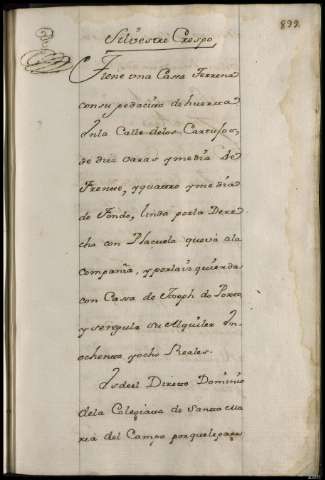 899.
Silvestre Crespo
Tiene una Cassa Terrena
con su pedacito de huerta
En la Calle de los Cartuchos,
de diez varas y media de
Frente, y quattro y media
de Fondo, linda por la Dere
cha con Plazuela que va a la
Compañia, y por la izquierda
con Cassa de Joseph do Porto
y se regula su Alquiler En
ochenta y ocho Reales.
Es de el Directo Dominio
de la Colegiata de Santa Ma
ria del Campo por que le paga